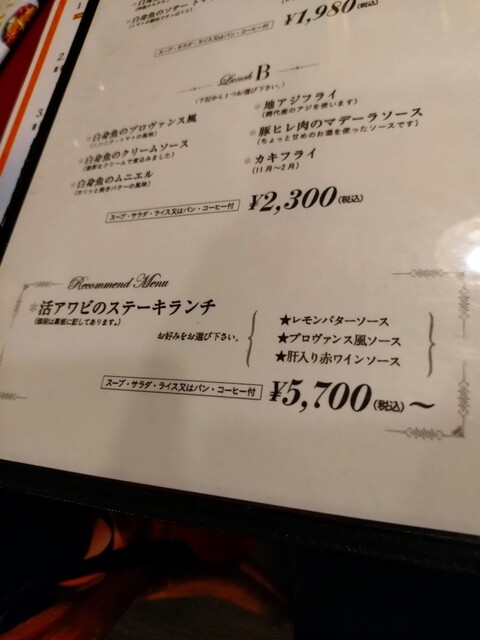 白身魚のソテー トマ
¥1,980(税込)
スープ・サラダ・ライス又はパン・コーヒー付
Lunch B
(下記から1つお選び下さい。)
*白身魚のプロヴァンス風
(ニンニク・トマトの風味)
*白身魚のクリームソース
*白身魚のムニエル
(カリッと焼きバターの風味)
*地アジフライ
(網代産のアジを使います)
*豚ヒレ肉のマデーラソース
(ちょっと甘めのお酒を使ったソースです)
*カキフライ
(11月~2月)
スープ・サラダ・ライス又はパン・コーヒー付
¥2,300(税込)
Recommend Menu
*活アワビのステーキランチ
(値段は黒板に記してあります。)
お好みをお選び下さい。
★レモンバターソース
★プロヴァンス風ソース
★肝入り赤ワインソース
スープ・サラダ・ライス又はパン・コーヒー付
¥5,700(税込)~